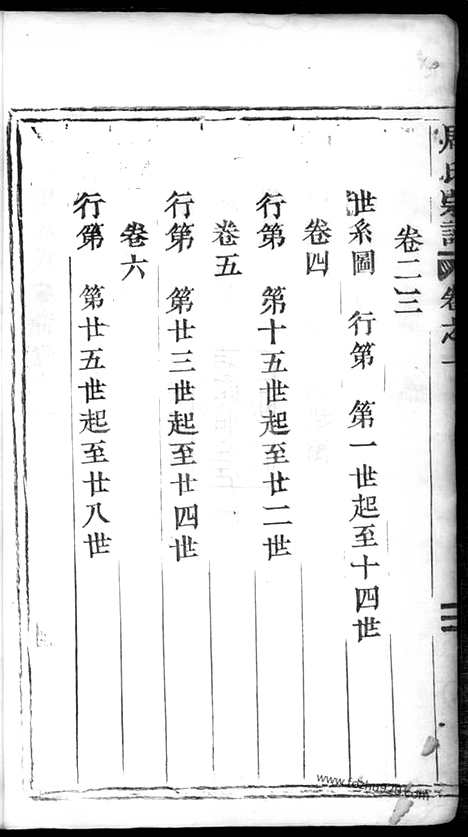 周氏宗譜 卷之一
二
卷二三
世系圖 行第 第一世起至十四世
卷四
行第 第十五世起至廿二世
卷五
行第 第廿三世起至廿四世
卷六
行第 第廿五世起至廿八世